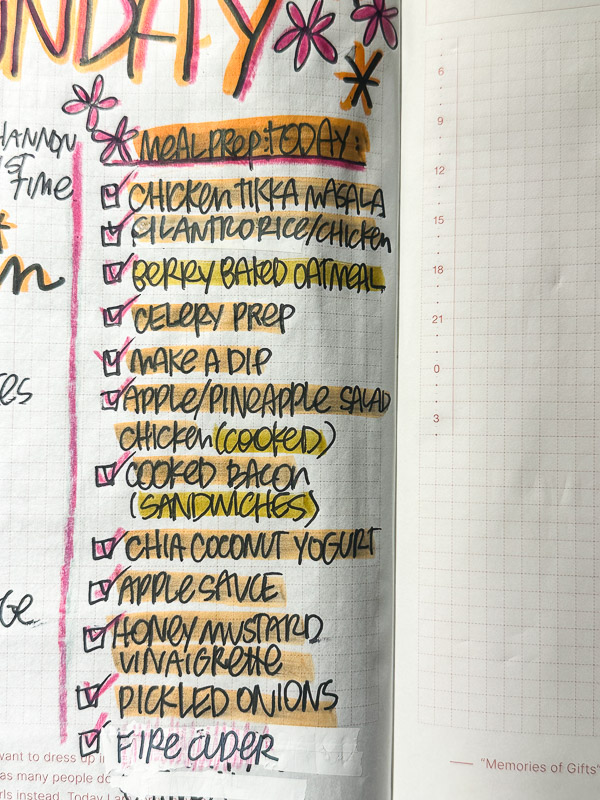 UNDAY
HANNON
TIME
MEAL PREP: TODAY:
CHICKEN TIKKA MASALA
CILANTRO RICE/CHICKEN
BERRY BAKED OATMEAL
CELERY PREP
MAKE A DIP
APPLE/PINEAPPLE SALAD
CHICKEN (COOKED)
COOKED BACON
(SANDWICHES)
CHIA COCONUT YOGURT
APPLESAUCE
HONEY MUSTARD
VINAIGRETTE
PICKLED ONIONS
FIRE CIDER
want to dress up i
as many people do
rls instead. Today I a
6
9
12
15
18
21
0
3
— "Memories of Gifts"